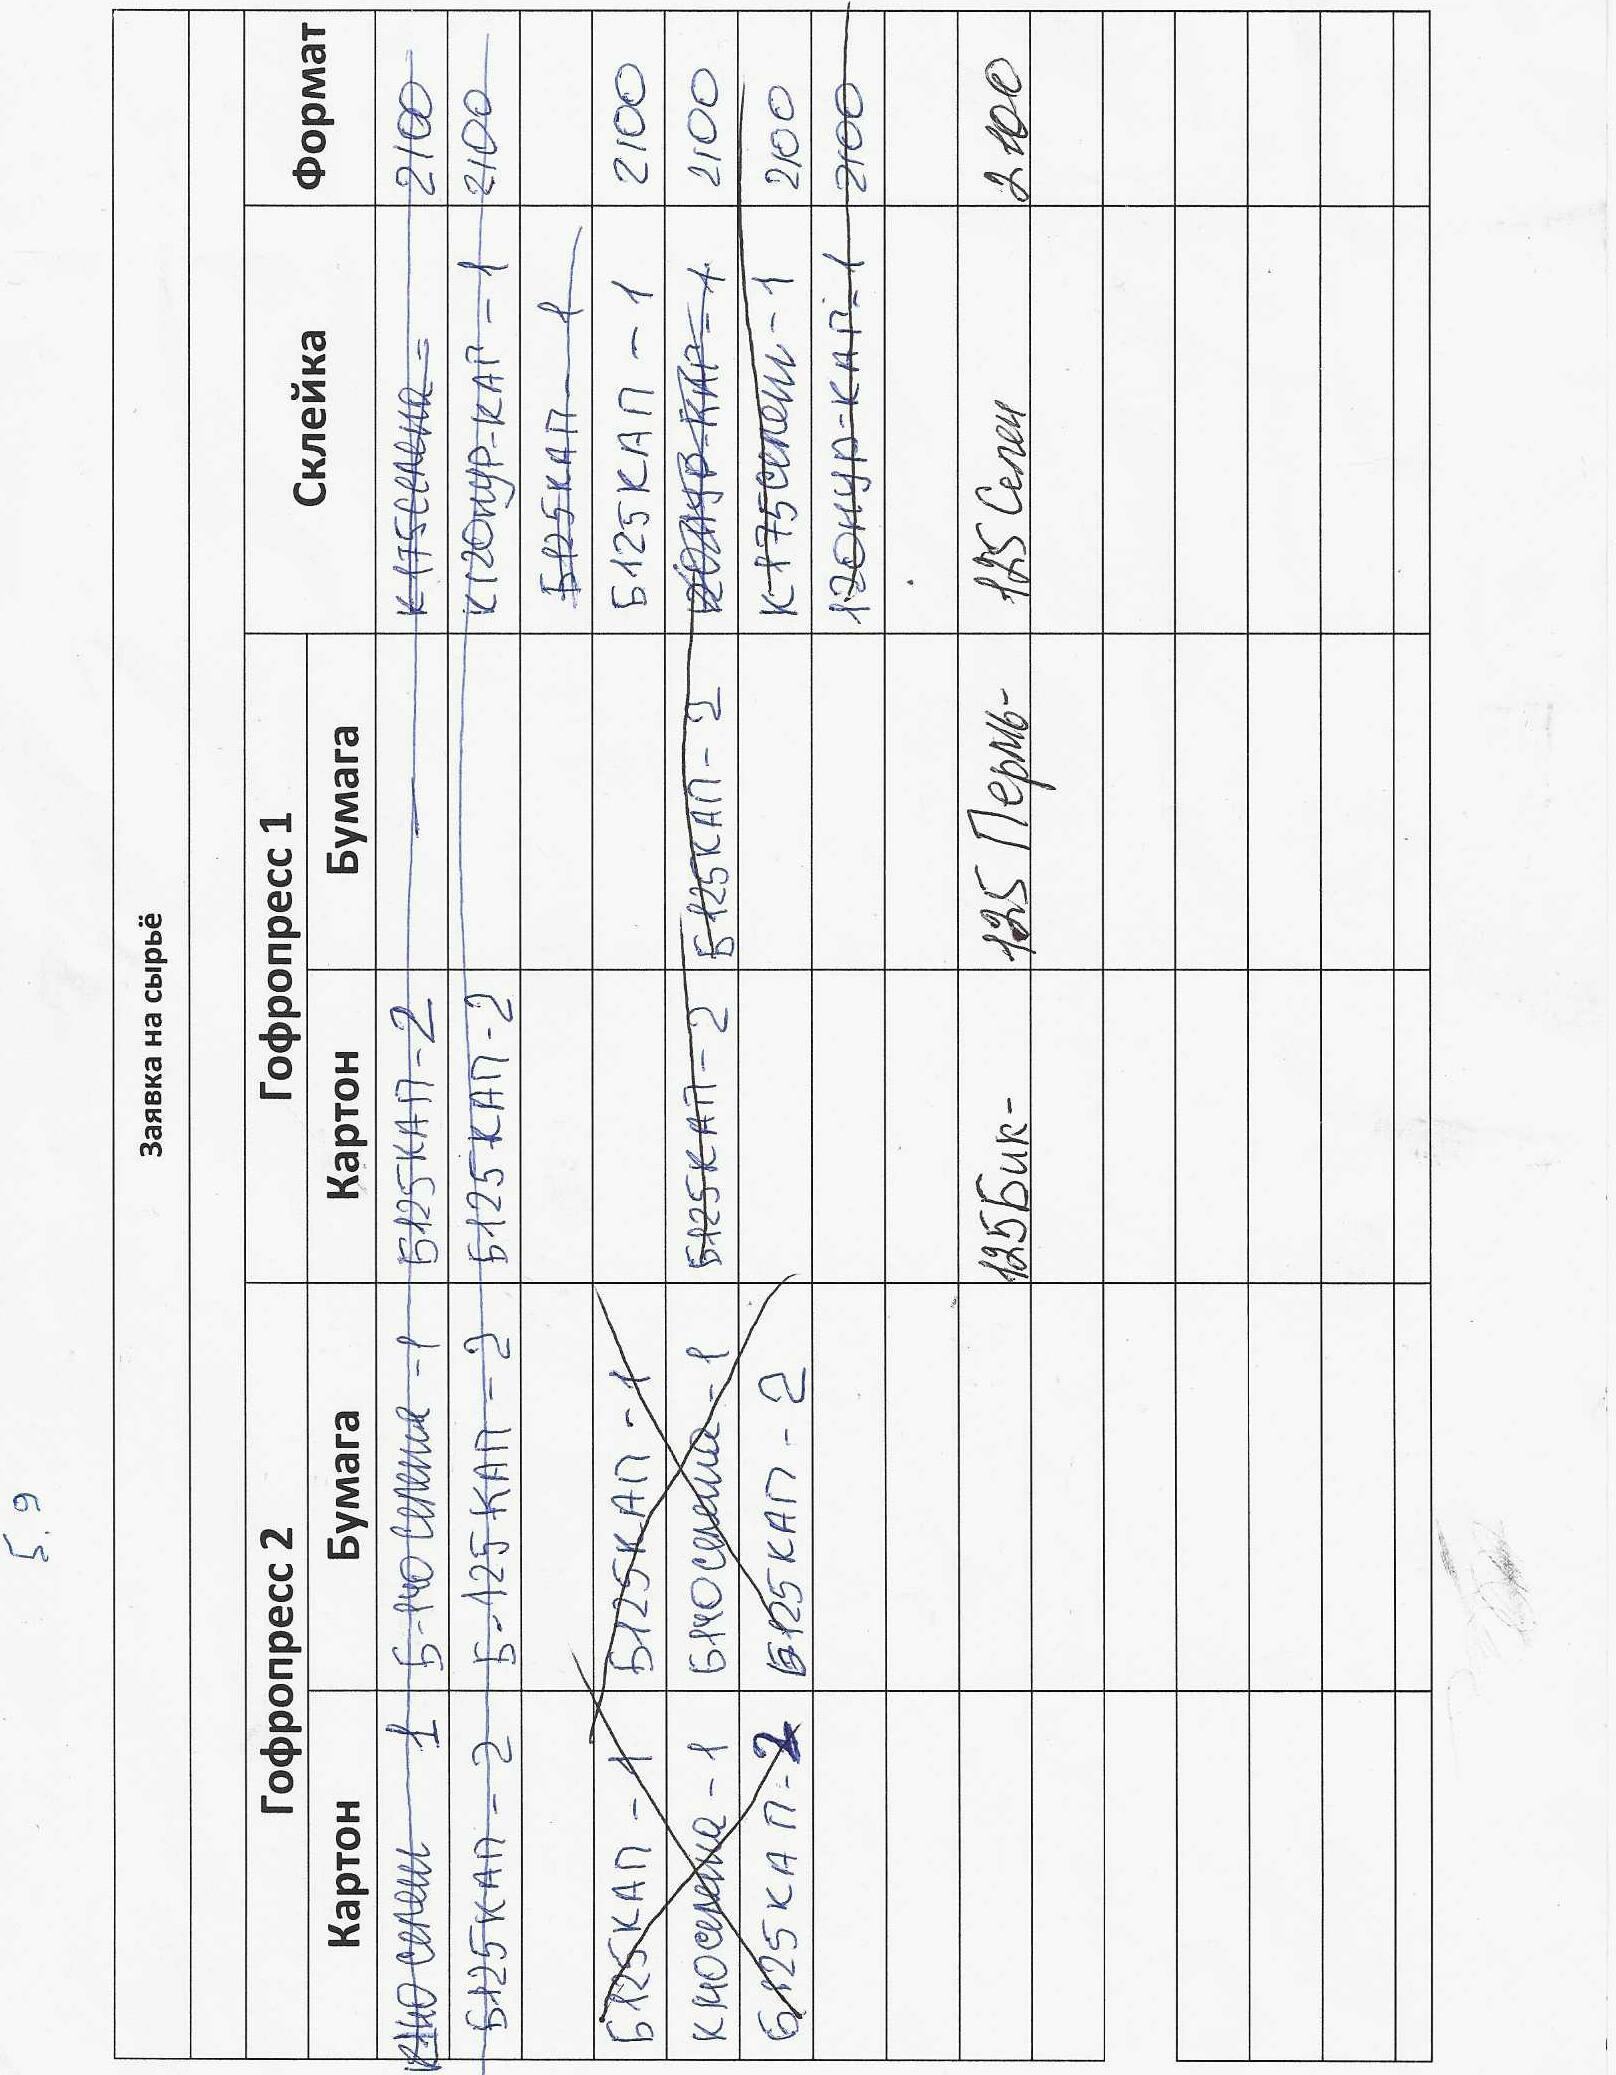 5.9
Заявка на сырьё
Гофропресс 2 Гофропресс 1 Склейка Формат
Картон Бумага Картон Бумага
К140 селен 1 Б-140 Селена -1 Б125КАП-2 — К175Селена - 2100
Б125КАП - 2 Б-125 КАП - 2 Б125 КАП-2 К120нур-КАП - 1 2100
Б125КАП - 1
Б125КАП - 1 Б125КАП - 1 Б125КАП - 1 2100
К140селена - 1 Б140селена - 1 Б125КАП - 2 Б125КАП - 2 120нур-КАП - 1 2100
Б125КАП-2 Б125КАП - 2 К175Селен - 1 2100
120нур-КАП-1 2100
125Бик- 125 Пермь- 125 Селен 2100